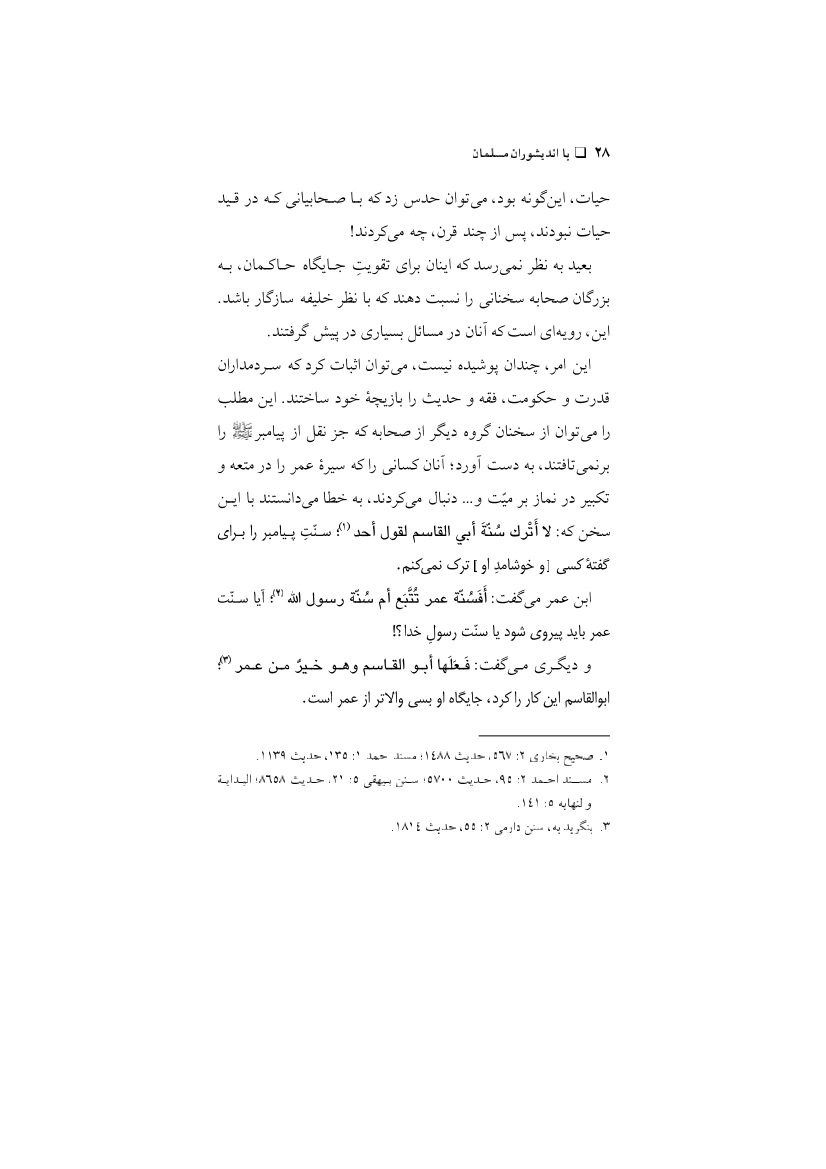 ۲۸ ❏ با اندیشوران مسلمان
حیات، این‌گونه بود، می‌توان حدس زد که بـا صـحابیانی کـه در قـید
حیات نبودند، پس از چند قرن، چه می‌کردند!
بعید به نظر نمی‌رسد که اینان برای تقویتِ جـایگاه حـاکـمان، بـه
بزرگان صحابه سخنانی را نسبت دهند که با نظر خلیفه سازگار باشد.
این، رویه‌ای است که آنان در مسائل بسیاری در پیش گرفتند.
این امر، چندان پوشیده نیست، می‌توان اثبات کرد که سـردمداران
قدرت و حکومت، فقه و حدیث را بازیچهٔ خود ساختند. این مطلب
را می‌توان از سخنان گروه دیگر از صحابه که جز نقل از پیامبر ﷺ را
برنمی‌تافتند، به دست آورد؛ آنان کسانی را که سیرهٔ عمر را در متعه و
تکبیر در نماز بر میّت و... دنبال می‌کردند، به خطا می‌دانستند با ایـن
سخن که: لا أَتْرك سُنّةَ أبي القاسم لقول أحد (۱)؛ سـنّتِ پـیامبر را بـرای
گفتهٔ کسی [و خوشامدِ او] ترک نمی‌کنم.
ابن عمر می‌گفت: أَفَسُنّة عمر تُتَّبَع أم سُنّة رسول الله (۲)؛ آیا سـنّت
عمر باید پیروی شود یا سنّت رسولِ خدا؟!
و دیگـری مـی‌گفت: فَـعَلَها أبـو القـاسم وهـو خـیرٌ مـن عـمر (۳)؛
ابوالقاسم این کار را کرد، جایگاه او بسی والاتر از عمر است.
۱. صحیح بخاری ۲: ۵٦۷، حدیث ۱٤۸۸؛ مسند حمد ۱: ۱۳۵، حدیث ۱۱۳۹.
۲. مسـند احـمد ۲: ۹۵، حـدیث ۵۷۰۰؛ سـنن بـیهقی ۵: ۲۱، حـدیث ۸٦۵۸؛ البـدایـة
و لنهایه ۵: ۱٤۱.
۳. بنگرید به، سنن دارمی ۲: ۵۵، حدیث ۱۸۱٤.